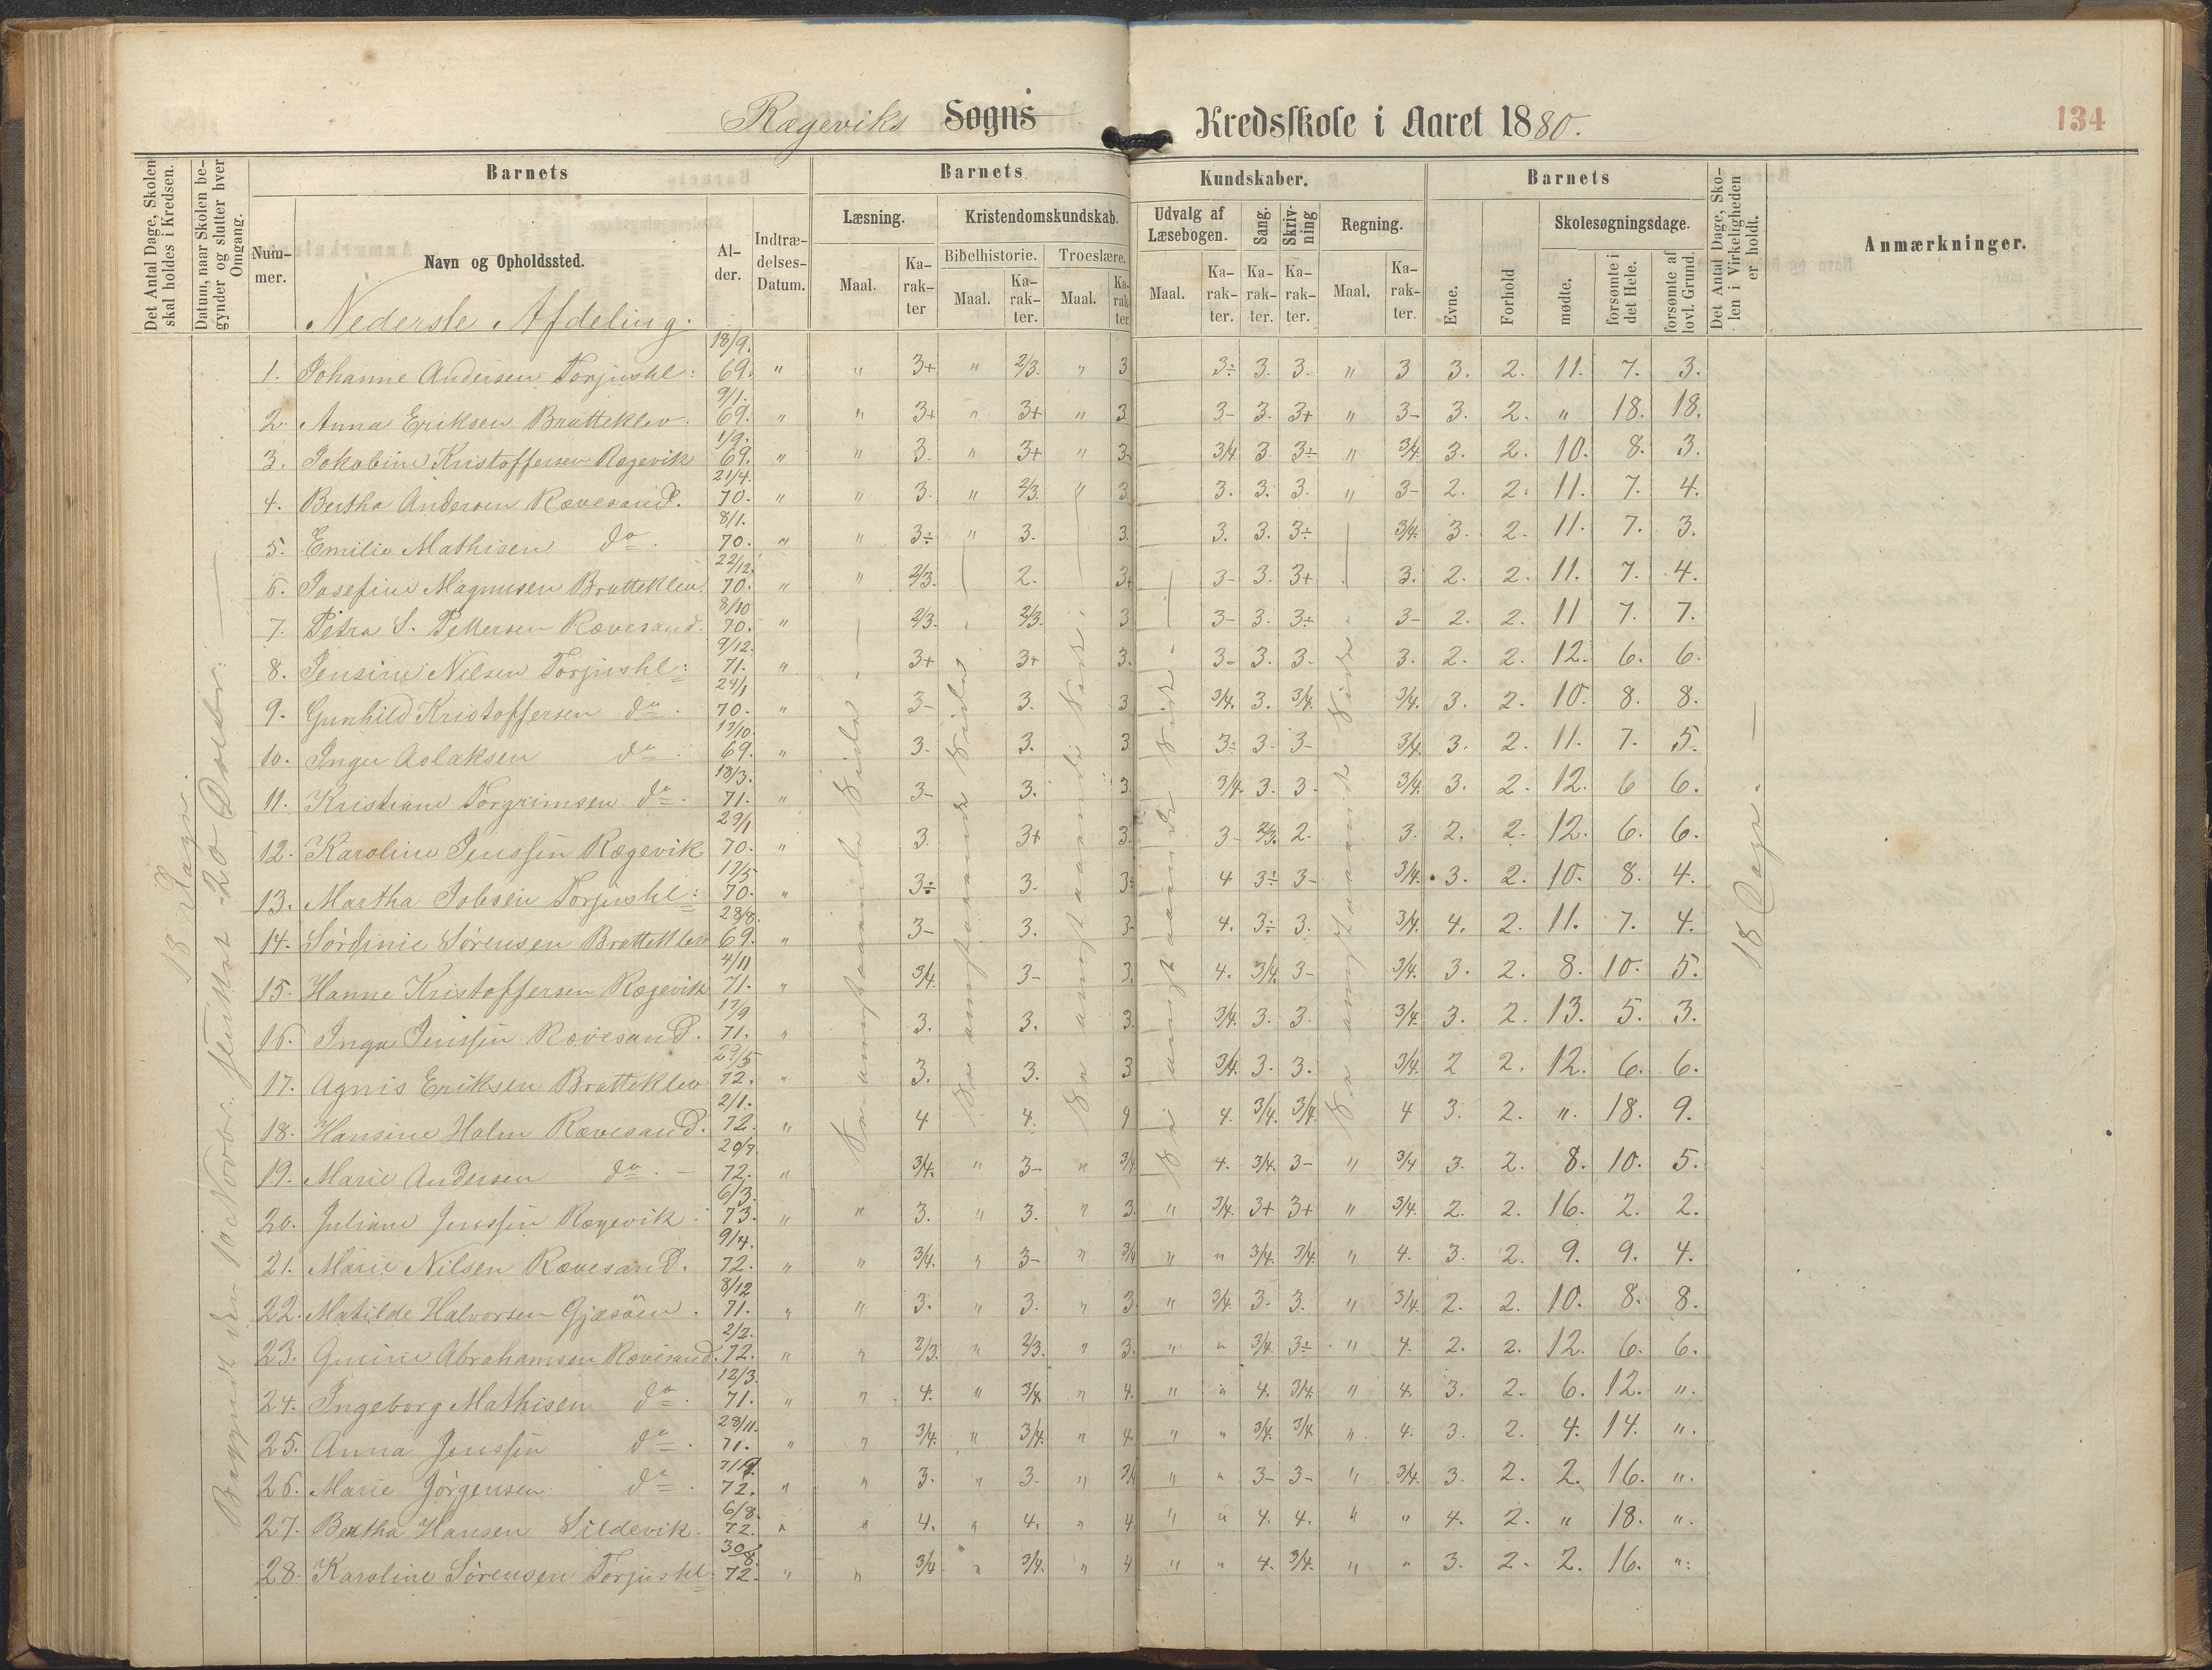 Rægeviks Sogns Kredsskole i Aaret 1880.
134
Det Antal Dage, Skolen skal holdes i Kredsen.
Datum, naar Skolen begynder og slutter hver Omgang.
Barnets
Barnets
Kundskaber.
Barnets
Det Antal Dage, Skolen i Virkeligheden er holdt.
Anmærkninger.
Nummer.
Navn og Opholdssted.
Alder.
Indtrædelses-Datum.
Læsning.
Kristendomskundskab.
Udvalg af Læsebogen.
Sang.
Skrivning
Regning.
Evne.
Forhold
Skolesøgningsdage.
Bibelhistorie.
Troeslære.
Maal.
Karakter
Maal.
Karakter.
Maal.
Karakter.
Maal.
Karakter.
Karakter.
Karakter.
Maal.
Karakter.
mødte.
forsømte i det Hele.
forsømte af lovl. Grund.
Nederste Afdeling.
18 Dage
18 Dage.
1. Johanne Andersen Torjushl: 18/9. 69. " " 3+ " 2/3. " 3 3÷ 3. 3. " 3 3. 2. 11. 7. 3.
2. Anna Eriksen Bratteklev. 9/1. 69. " " 3+ " 3+ " 3 3- 3. 3+ " 3- 3. 2. " 18. 18.
3. Jakobine Kristoffersen Rægevik 1/9. 69. " " 3. " 3+ " 3- 3/4 3. 3÷ " 3/4. 3. 2. 10. 8. 3.
4. Bertha Andersen Rævesand. 21/4. 70. " " 3. " 2/3. " 3. 3. 3. 3. " 3- 2. 2. 11. 7. 4.
5. Emilie Mathisen do. 8/1. 70. " " 3÷ " 3. 3. 3. 3. 3÷ 3/4. 3. 2. 11. 7. 3.
6. Josefine Magnusen Bratteklev. 22/12. 70. " " 2/3. 2. 3+ 3- 3. 3+ 3. 2. 2. 11. 7. 4.
7. Petra S. Pettersen Rævesand. 8/10 70. " 2/3. 2/3. 3 3- 3. 3÷ 3- 2. 2. 11 7. 7.
8. Jensine Nilsen Torjushl: 9/12. 71. " 3+ 3+ 3. 3- 3. 3. 3. 2. 2. 12. 6. 6.
9. Gunhild Kristoffersen do. 24/1 70. " 3- 3. 3 3/4. 3. 3/4. 3/4. 3. 2. 10. 8. 8.
10. Inger Aslaksen do. 17/10. 69. " 3. 3. 3 3÷ 3. 3- 3/4. 3. 2. 11. 7. 5.
11. Kristiane Torgrimsen do. 18/3. 71. " 3- 3. 3. 3/4. 3. 3. 3/4. 3. 2. 12. 6 6.
12. Karoline Jenssen Rægevik 29/1 70. " 3. 3+ 3. 3- 2/3. 2. 3. 2. 2. 12. 6. 6.
13. Martha Jobsen Torjushl: 17/5 70. " 3÷ 3. 3÷ 4 3÷ 3- 3/4. 3. 2. 10. 8. 4.
14. Sördinie Sörensen Bratteklev 28/8. 69. " 3- 3. 3- 4. 3÷ 3. 3/4. 4. 2. 11. 7. 4.
15. Hanne Kristoffersen Rægevik 4/11 71. " 3/4. 3- 3. 4. 3/4. 3- 3/4. 3. 2. 8. 10. 5.
16. Inga Jenssen Rævesand. 17/9 71. " 3. 3. 3. 3/4. 3. 3. 3/4. 3. 2. 13. 5. 3.
17. Agnis Eriksen Bratteklev 29/5 72. " 3. 3. 3 3/4. 3. 3. 3/4. 2 2. 12. 6. 6.
18. Hansine Holm Rævesand. 2/1. 72. " 4 4. 4 4. 3/4. 3/4. 4 3. 2. ". 18. 9.
19. Marie Andersen do. 20/7. 72. " 3/4. " 3- " 3/4. 4. 3/4. 3- " 3/4 3. 2. 8. 10. 5.
20. Juliane Jenssen Rægevik. 6/3. 73. " " 3. " 3. " 3. " 3/4. 3+ 3+ " 3/4. 2. 2. 16. 2. 2.
21. Marie Nilsen Rævesand. 9/4. 72. " " 3/4. " 3- " 3/4 " " 3/4. 3/4. " 4. 3. 2. 9. 9. 4.
22. Matilde Halvorsen Gjæsöen. 8/12 71. " " 3. " 3. " 3. " 3/4. 3. 3. " 3/4. 2. 2. 10. 8. 8.
23. Gurine Abrahamsen Rævesand. 2/2. 72. " " 2/3. " 2/3. " 3. " " 3/4. 3÷ " 4. 2. 2. 12. 6. 6.
24. Ingeborg Mathisen do. 12/3. 71. " " 4. " 3/4. " 4. " " 4. 3/4. " 4. 3. 2. 6. 12. ".
25. Anna Jenssen do. 28/11. 71. " " 3/4. " 3/4. " 4. " " 3/4. 3/4. " 4. 3. 2. 4. 14. ".
26. Marie Jörgensen do. 72. " " 3. " 3. " 3/4 " " 3- 3- " 3/4. 3. 2. 2. 16. ".
27. Bertha Hansen Sildevik. 6/8. 72. " " 4. " 4. " 4. " " 4. 4. " " 4. 2. " 18. ".
28. Karoline Sörensen Torjushl: 30/8. 72. " " 3/4. " 3/4. " 4 " " 4. 3/4. " " 3. 2. 2. 16. ".